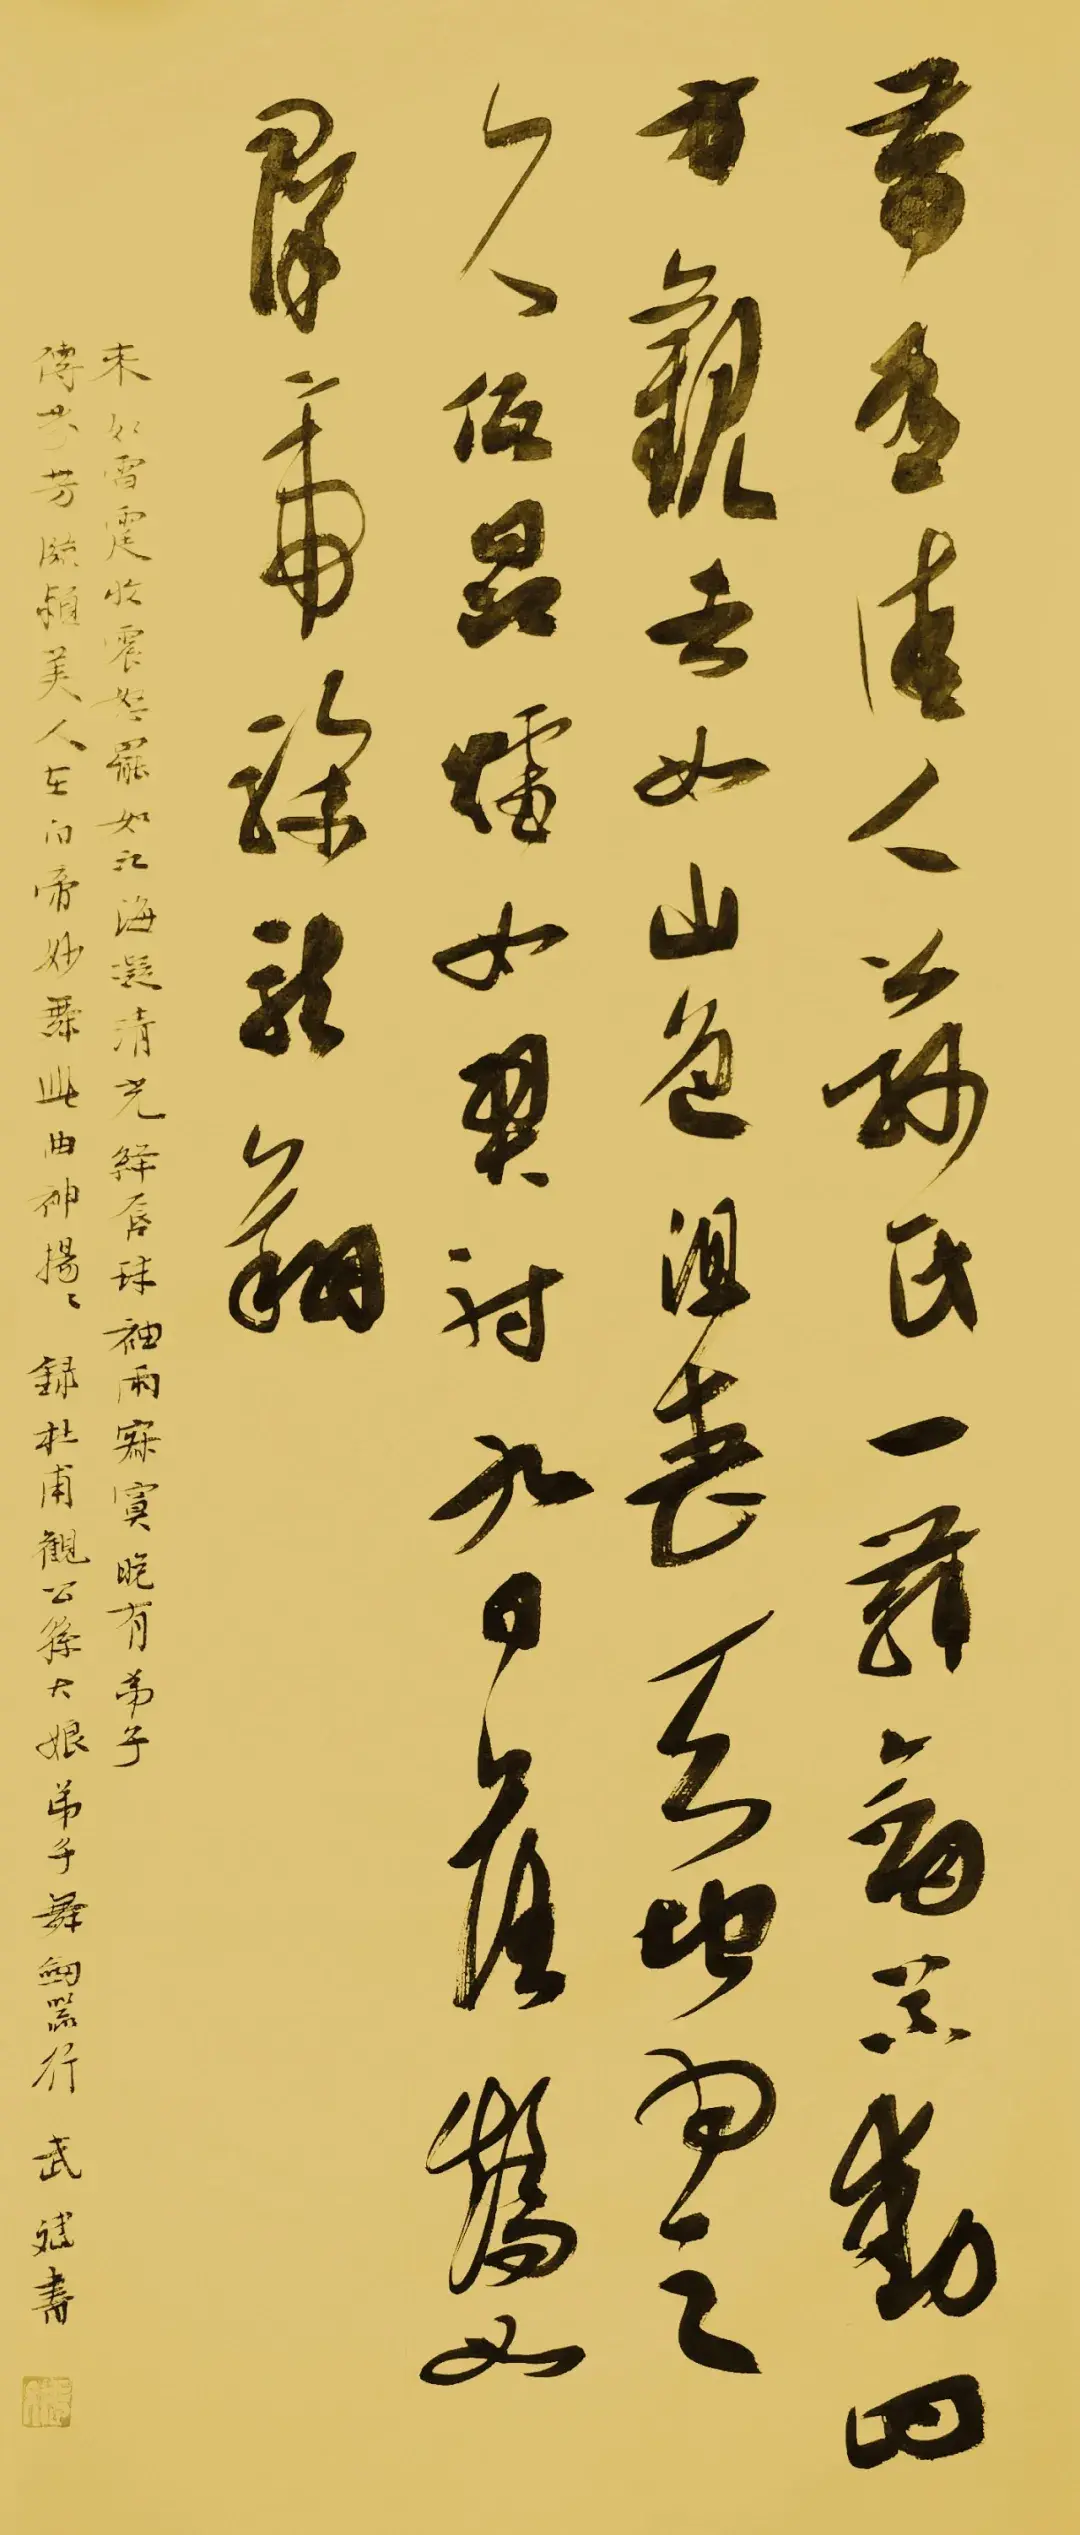 昔有佳人公孫氏一舞劍器動四
方觀者如山色沮喪天地為之
久低昂㸌如羿射九日落矯如
羣帝驂龍翔
來如雷霆收震怒罷如江海凝清光絳唇珠袖兩寂寞晚有弟子
傳芬芳臨潁美人在白帝妙舞此曲神揚〻 録杜甫觀公孫大娘弟子舞劍器行 武斌書